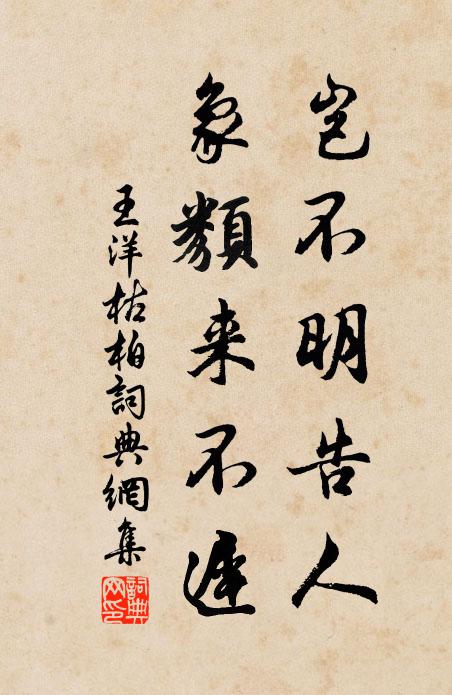 岂不明告人
象類来不遲
王洋枯柏詞典網集
詞典網印